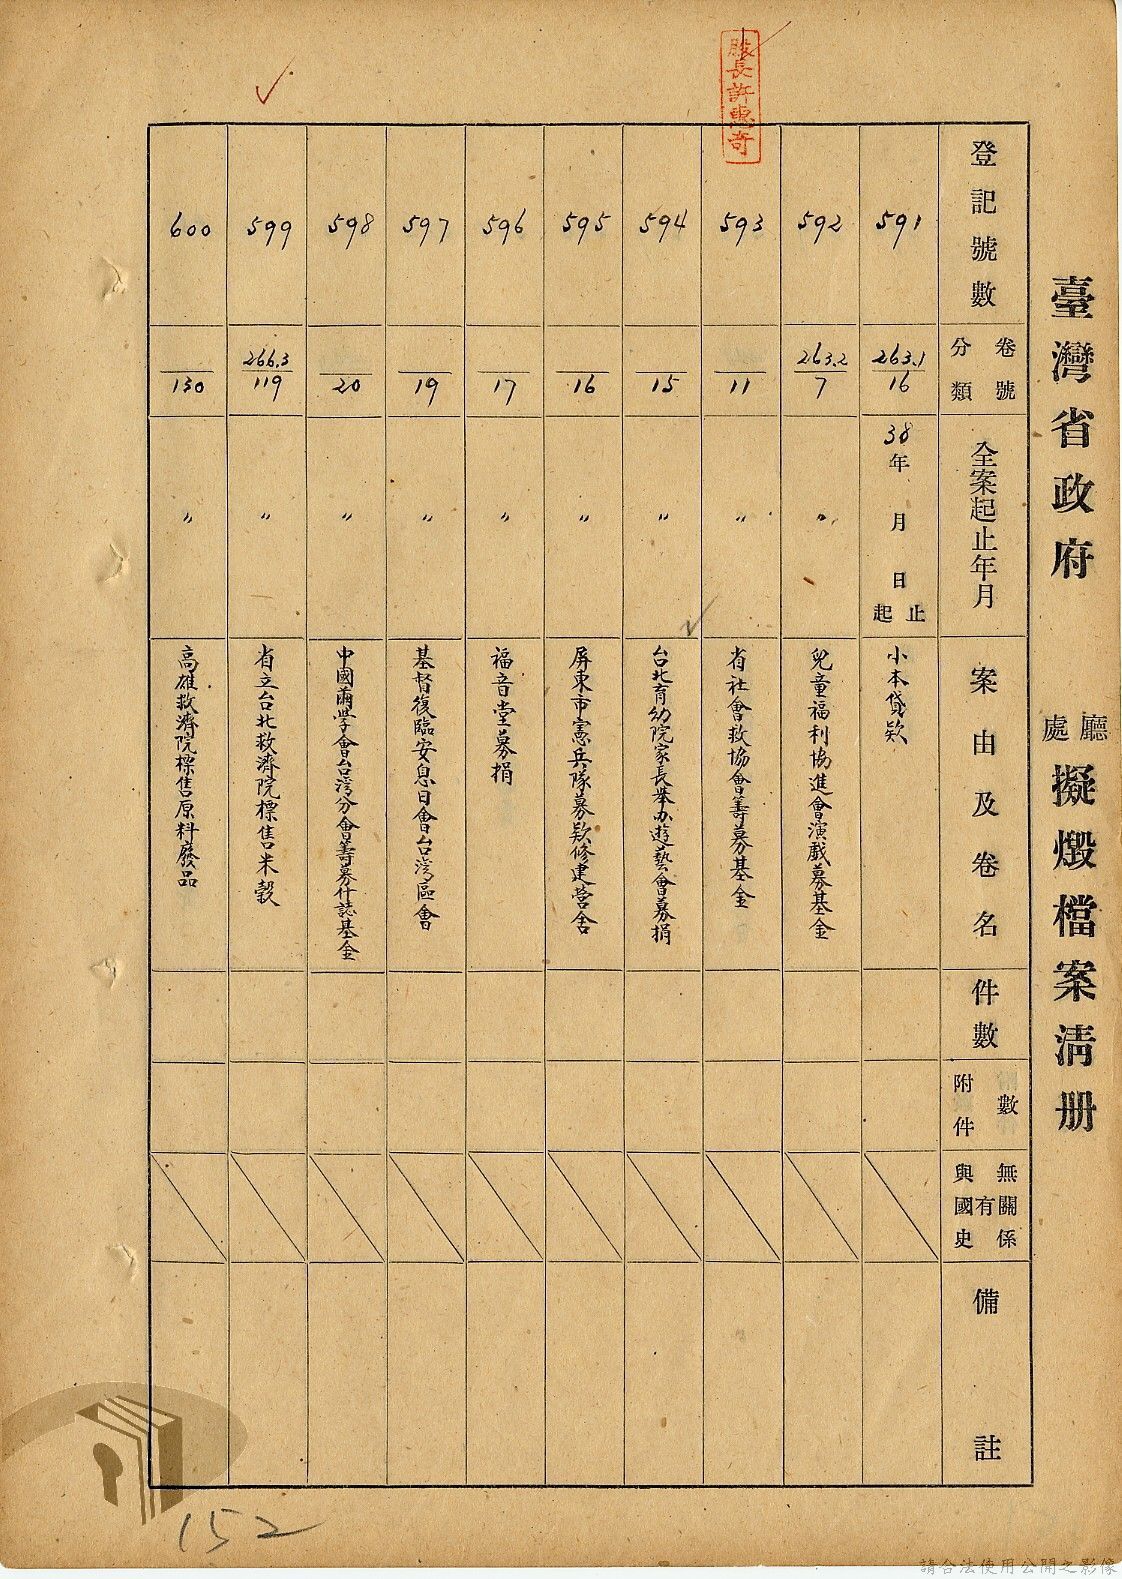 臺灣省政府 廳處 擬燬檔案清册
登記號數
分類 卷號
全案起止年月
案由及卷名
件數
附件 數
與國史 有 無關係
備註
591
263.1
16
38年 月 日 起止
小本貸款
592
263.2
7
〃
兒童福利協進會演戲募基金
593
11
〃
省社會救協會籌募基金
594
15
〃
台北育幼院家長举办遊藝會募捐
595
16
〃
屏東市憲兵隊募款修建营舍
596
17
〃
福音堂募捐
597
19
〃
基督復臨安息日會台湾區會
598
20
〃
中國 學會台湾分會籌募什誌基金
599
266.3
119
〃
省立台北救濟院標售米穀
600
130
〃
高雄救濟院標售原料廢品
股長許惠奇
152
請合法使用公開之影像